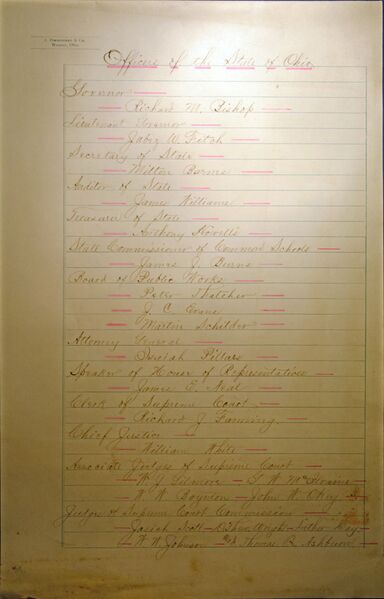 Wooster, Ohio.
Officers of the State of Ohio
Governor
Richard M. Bishop
Lieutenant Governor
Jabez W. Fitch
Secretary of State
Milton Barnes
Auditor of State
James Williams
Treasurer of State
Anthony Howells
State Commissioner of Common Schools
James J. Burns
Board of Public Works
Peter Thatcher
J. C. Evans
Martin Schilder
Attorney General
Isaiah Pillars
Speaker of House of Representatives
James E. Neal
Clerk of Supreme Court
Richard J. Fanning
Chief Justice
William White
Associate Judges of Supreme Court
W. J. Gilmore G. W. McIlvaine
W. W. Boynton John W. Okey
Judges of Supreme Court Commission
Josiah Scott D. Thew Wright Luther Day
W. W. Johnson Thomas Q. Ashburn